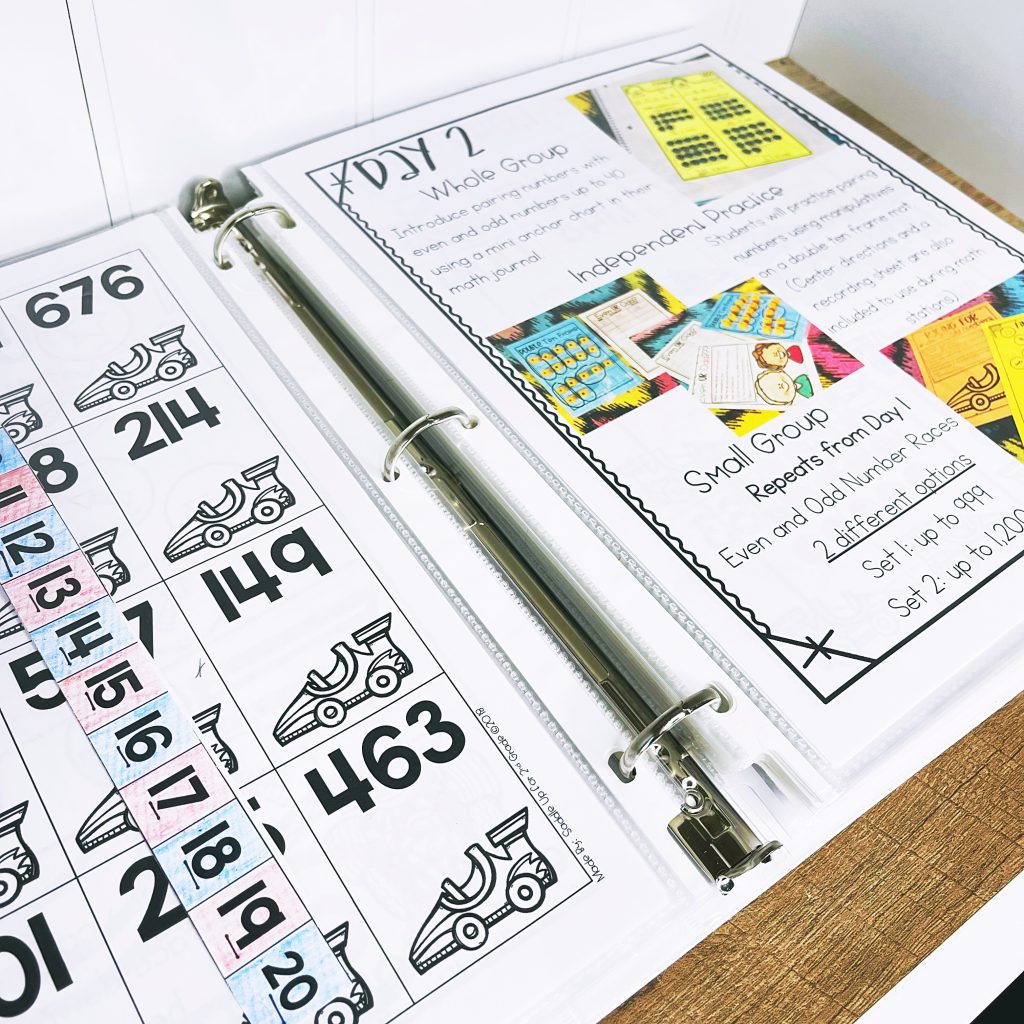 676
214
8
149
7
5
463
2
01
11
12
13
14
15
16
17
18
19
20
Made By: Saddle Up For 2nd Grade ©2018
DAY 2
Whole Group
Introduce pairing numbers with
even and odd numbers up to 40
using a mini anchor chart in their
math journal.
Independent Practice
Students will practice pairing
numbers using manipulatives
on a double ten frame mat.
(Center directions and a
recording sheet are also
included to use during math
stations)
DOUBLE Ten Frame
Small Group
Repeats from Day 1
Even and Odd Number Races
2 different options
Set 1: up to 999
Set 2: up to 1,200